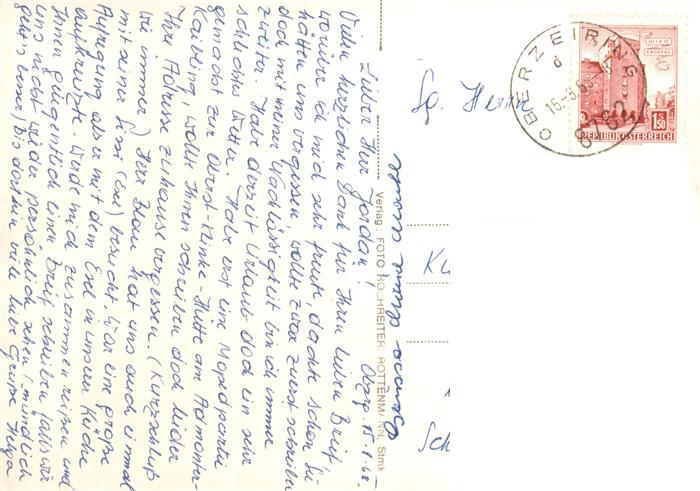 Oberzg. 15.8.68.
Lieber Herr Jordan!
Vielen herzlichen Dank für Ihren lieben Brief,
worüber ich mich sehr freute dachte schon Sie
hätten uns vergessen wollte zwar zuerst schreiben
doch mit meiner Nachlässigkeit bin ich immer
zweiter. Habe derzeit Urlaub doch ein sehr
schlechtes Wetter. Habe erst eine Mopedpartie
gemacht zur Oberst-Klinke-Hütte am Admonter-
Kaibling, wollte Ihnen schreiben doch leider
Ihre Adresse zuhause vergessen. (Kurzschluß
wie immer) Herr Blau hat uns auch einmal
mit seiner besucht, war eine große
Aufregung als er mit dem Esel in unserer Küche
aufkreuzte. Werde mich zusammenreißen und
Ihnen gelegentlich einen Brief schreiben falls wir
uns nicht wieder persönlich sehen (mündlich
geht's besser) Bis dorthin viele liebe Grüße Helga
Verlag: FOTO HOCHREITER, ROTTENMANN, Stmk
Sg. Herrn
Ku
Sch
OBERZEIRING
15.-8.68
8762
WIEN
ERDBERG
1.50
REPUBLIK ÖSTERREICH